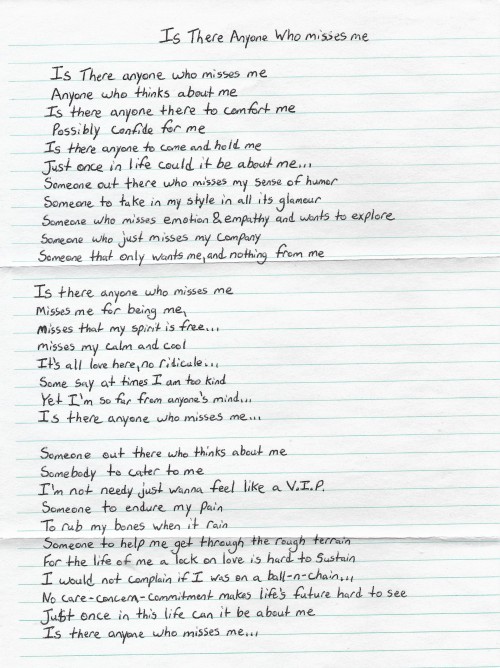 Is There Anyone Who misses me
Is There anyone who misses me
Anyone who thinks about me
Is there anyone there to comfort me
Possibly confide for me
Is there anyone to come and hold me
Just once in life could it be about me...
Someone out there who misses my sense of humor
Someone to take in my style in all its glamour
Someone who misses emotion & empathy and wants to explore
Someone who just misses my company
Someone that only wants me, and nothing from me
Is there anyone who misses me
Misses me for being me,
Misses that my spirit is free...
misses my calm and cool
It's all love here, no ridicule...
Some say at times I am too kind
Yet I'm so far from anyone's mind...
Is there anyone who misses me...
Someone out there who thinks about me
Somebody to cater to me
I'm not needy just wanna feel like a V.I.P.
Someone to endure my pain
To rub my bones when it rain
Someone to help me get through the rough terrain
For the life of me a lock on love is hard to sustain
I would not complain if I was on a ball-n-chain...
No care-concern-commitment makes life's future hard to see
Just once in this life can it be about me
Is there anyone who misses me...